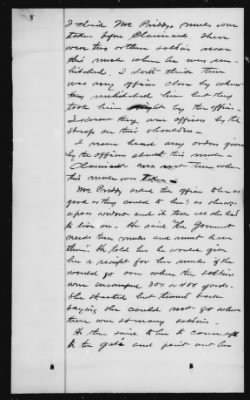 I think Mr Priddys mules were
taken before Claimants. There
were two or three soldiers near
this mule when he was un-
hitched. I don't think there
was any officer close by when
they unhitched him but they
took him right by the officer.
I know they were officers by the
straps on their shoulders.
I never heard any orders given
by the officers about this mule.
Claimant was not there when
this mule was taken
Mrs Priddy asked the officer to be as
good as they could to her; as she was
a poor widow and it took all she had
to live on. He said the Government
needs these mules and must have
them. He told her he would give
her a receipt for her mules if she
would go over where the soldiers
were encamped 300 or 400 yards.
She started but turned back
saying she could not go where
there was so many soldiers.
He then said to her to come
to the gate and point out her